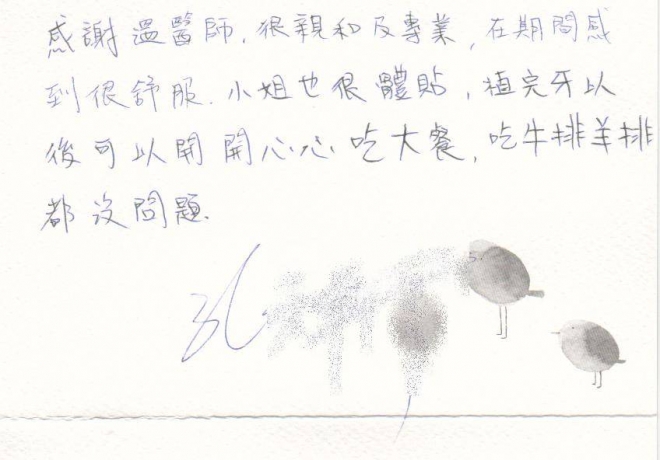 感謝溫醫師,很親和及專業,在期間感
到很舒服.小姐也很體貼,植完牙以
後可以開開心心吃大餐,吃牛排羊排
都沒問題.